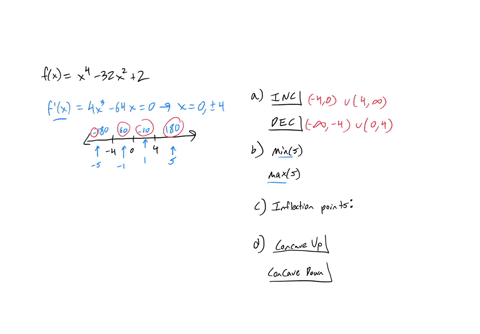 f(x) = x⁴ -32x² +2
f'(x) = 4x³ -64x = 0 → x = 0, ±4
-180 60 -60 180
-4 0 4
-5 -1 1 5
a) INC (-4,0) ∪ (4,∞)
DEC (-∞,-4) ∪ (0,4)
b) min(s)
max(s)
c) Inflection points:
d) Concave Up
Concave Down